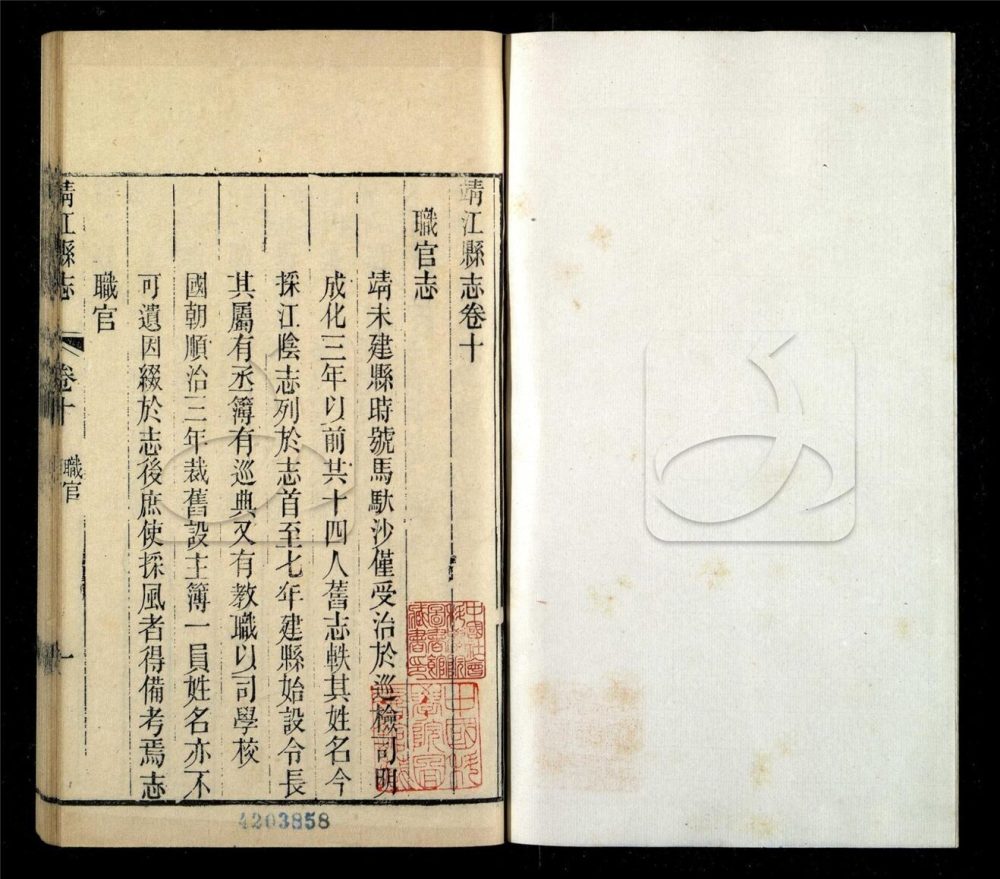 靖江縣志卷十
職官志
靖未建縣時號馬馱沙僅受治於巡檢司明
成化三年以前共十四人舊志軼其姓名今
採江陰志列於志首至七年建縣始設令長
其屬有丞簿有巡典又有教職以司學校
國朝順治三年裁舊設主簿一員姓名亦不
可遺因綴於志後庶使採風者得備考焉志
職官
靖江縣志
卷十
職官
一
4203858